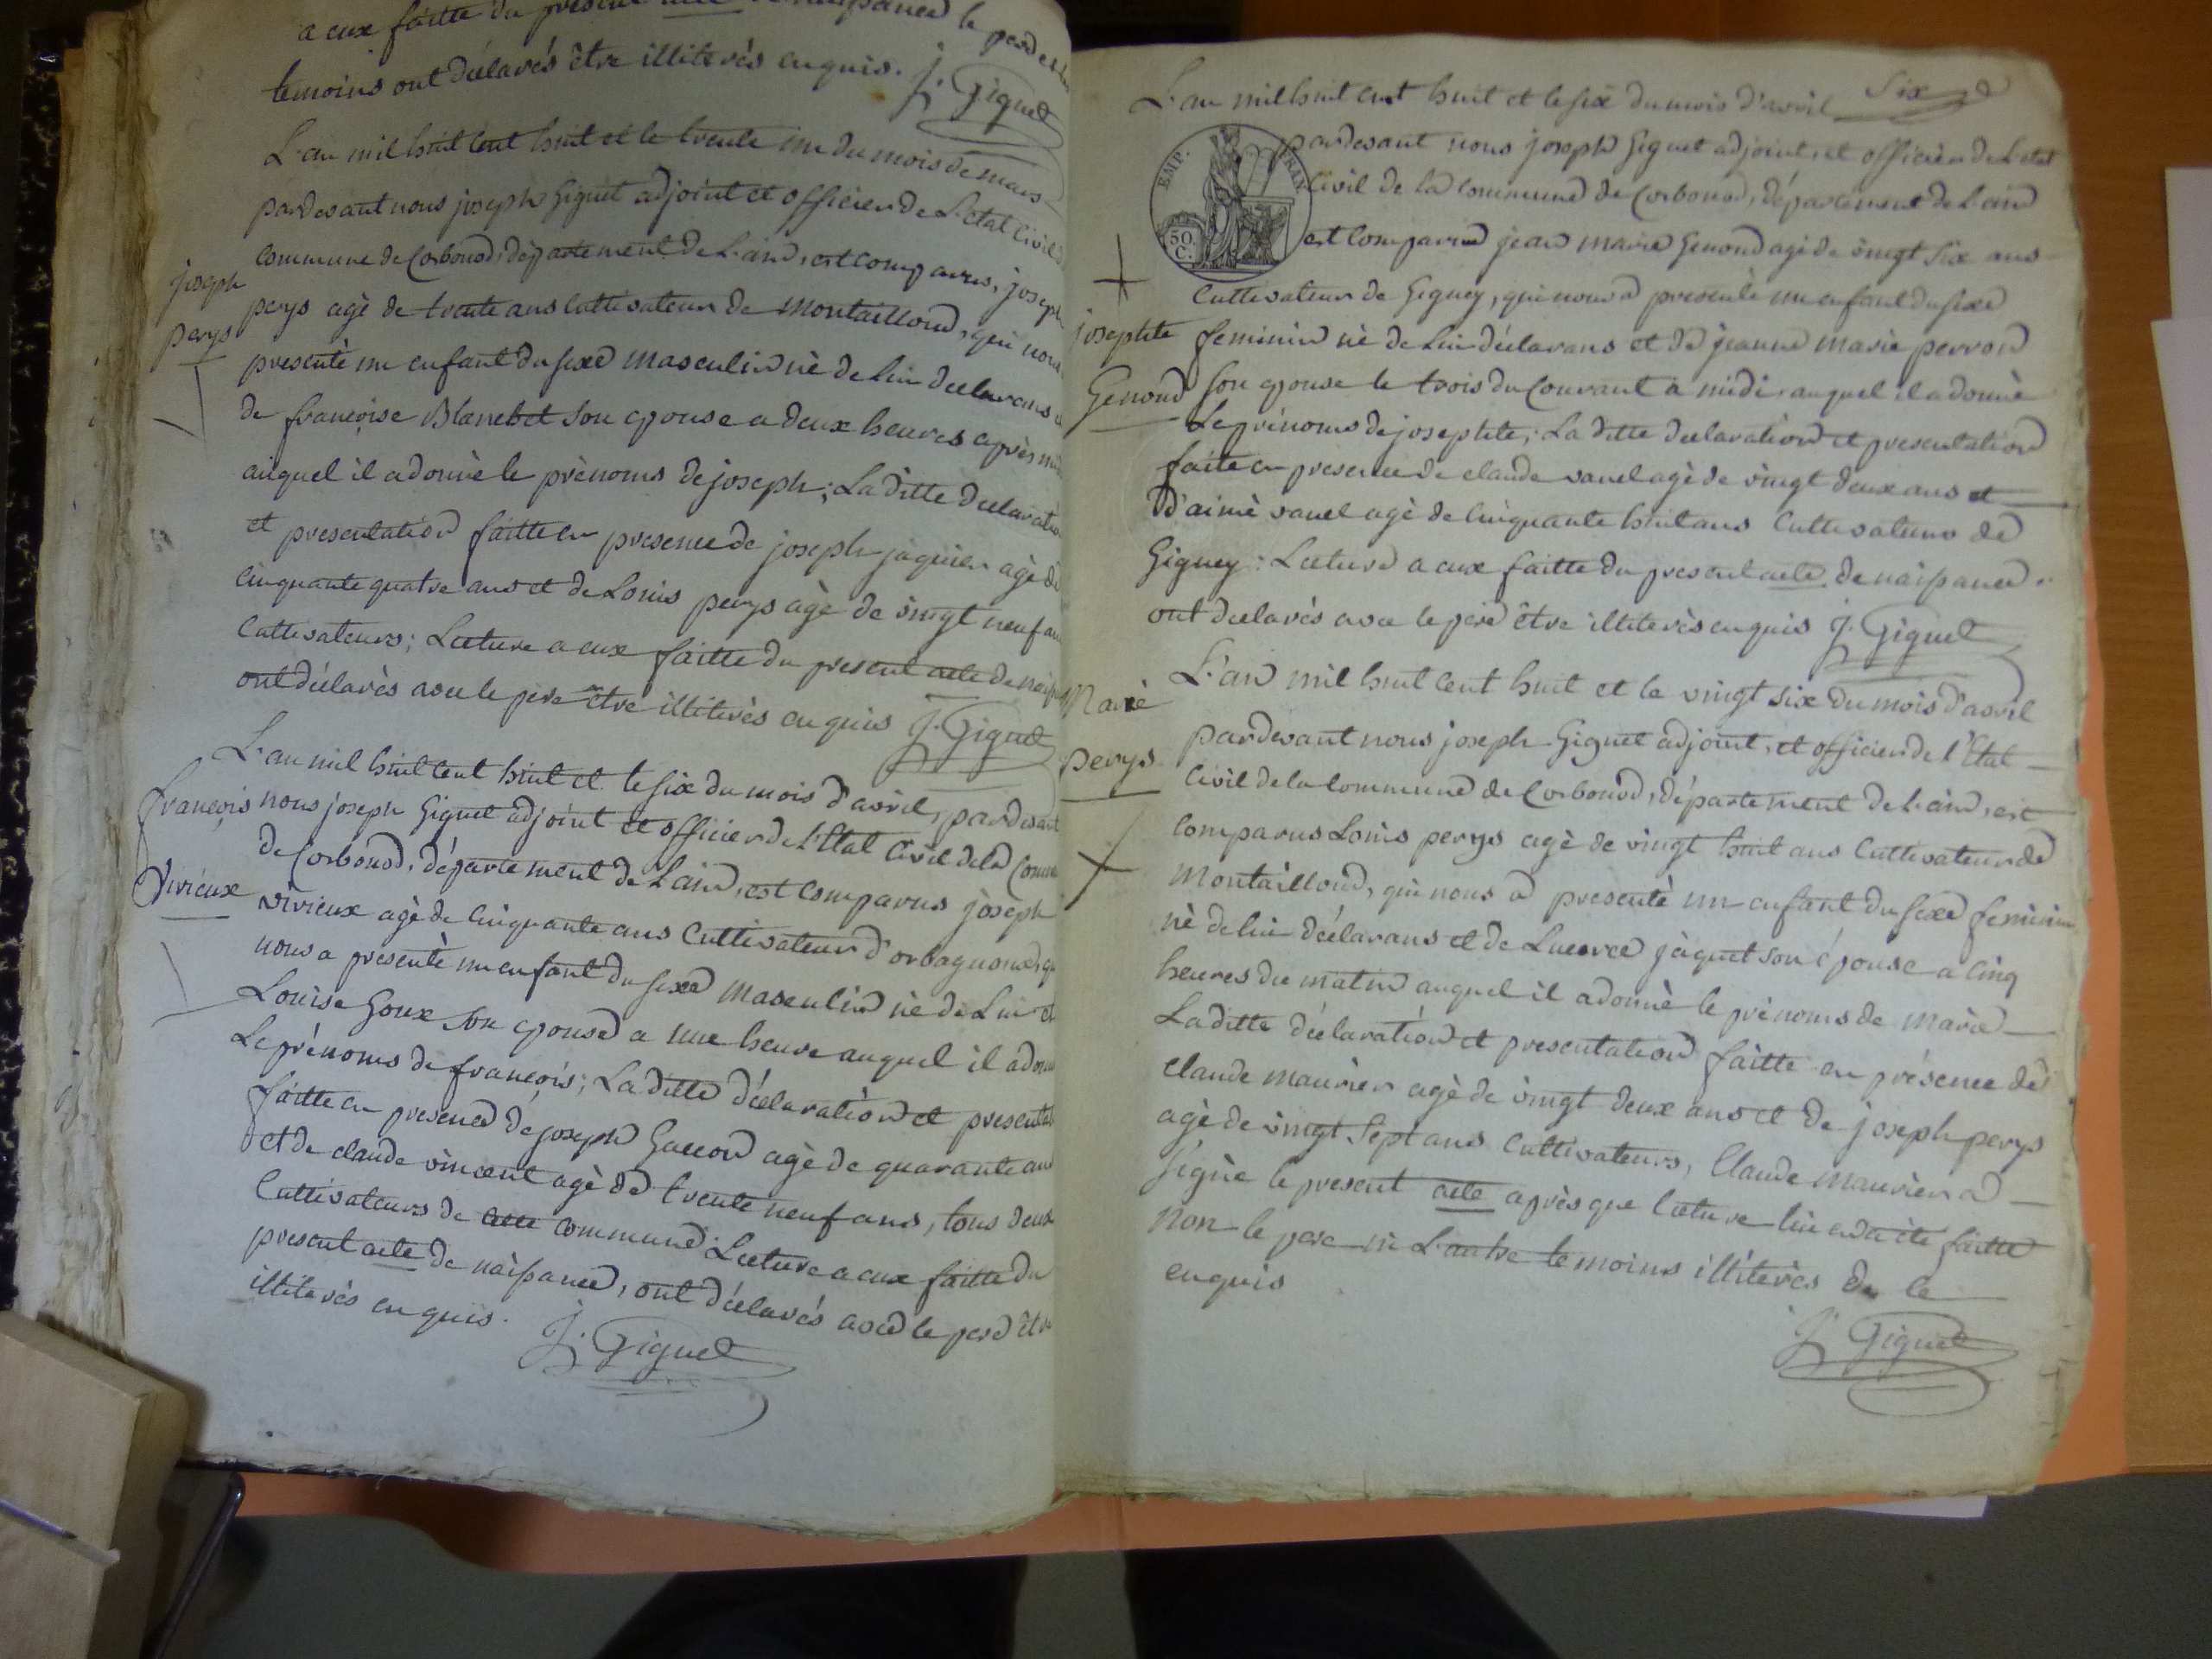 a eux faitte du present acte de naissance le pere et les
temoins ont déclarés être illiterés enquis. J. Giguet
L'an mil huit cent huit et le trente un du mois de mars
pardevant nous joseph Giguet adjoint et officier de L'etat civil
commune de Corbonod, département de L'ain, est comparus, joseph
joseph
perys
perys agè de trente ans Cultivateur de Montailloud, qui nous
presentè un enfant du sexe masculin nè de Lui declarans
de françoise Blanchet son epouse a deux heures après midi
auquel il a donnè le prènoms de joseph; La ditte declaration
et presentation faitte en presence de joseph jaquier agè de
cinquante quatre ans et de Louis perys agè de vingt neuf ans
Cultivateurs; Lecture a eux faitte du present acte de
ont déclarès avec le pere être illiterès enquis J. Giguet
L'an mil huit cent huit et le six du mois d'avril, pardevant
françois
Vivieux
nous joseph Giguet adjoint et officier de L'Etat Civil de la
de Corbonod, département de L'ain, est comparus joseph
vivieux agè de cinquante ans Cultivateur d'orbagnoux,
nous a presentè un enfant du sexe masculin nè de Lui et
Louise Goux son epouse a une heure auquel il a
Le prénoms de françois; La ditte déclaration et
faitte en presence de joseph Gaccon agè de quarante ans
et de claude vincent agè de trente neuf ans, tous deux
Cultivateurs de cette commune; Lecture a eux faitte du
present acte de naissance, ont déclarés avec le pere être
illiterés enquis. J. Giguet
Six
L'an mil huit cent huit et le six du mois d'avril
EMP. FRAN.
50. C.
pardevant nous joseph Giguet adjoint, et officier de L'etat
Civil de la Commune de Corbonod, département de L'ain
est comparus jean marie Genoud agè de vingt six ans
Cultivateur de Gigney, qui nous a presentè un enfant du sexe
josephte
Genoud
feminin nè de Lui déclarans et de jeanne marie perron
son epouse le trois du Courant a midi, auquel il a donnè
Le prénoms de josephte; La ditte declaration et presentation
faite en presence de claude vanel agè de vingt deux ans et
d'aimè vanel agè de cinquante huit ans Cultivateurs de
Gigney; Lecture a eux faitte du present acte de naissance
ont declarès avec le pere être illiterès enquis J. Giguet
L'an mil huit cent huit et le vingt six du mois d'avril
Marie
perys
pardevant nous joseph Giguet adjoint, et officier de l'Etat
Civil de la commune de Corbonod, département de L'ain, est
comparus Louis perys agè de vingt huit ans Cultivateur de
Montailloud, qui nous a presentè un enfant du sexe feminin
nè de lui déclarans et de Lucrece jaquet son épouse a cinq
heures du matin auquel il a donnè le prènoms de marie
La ditte déclaration et presentation faitte en présence de
claude maurier agè de vingt deux ans et de joseph perys
agè de vingt sept ans Cultivateurs, Claude maurier a
signè le present acte après que lecture lui en a ètè faitte
non le pere ni L'autre temoins illitérès de ce
enquis
J. Giguet